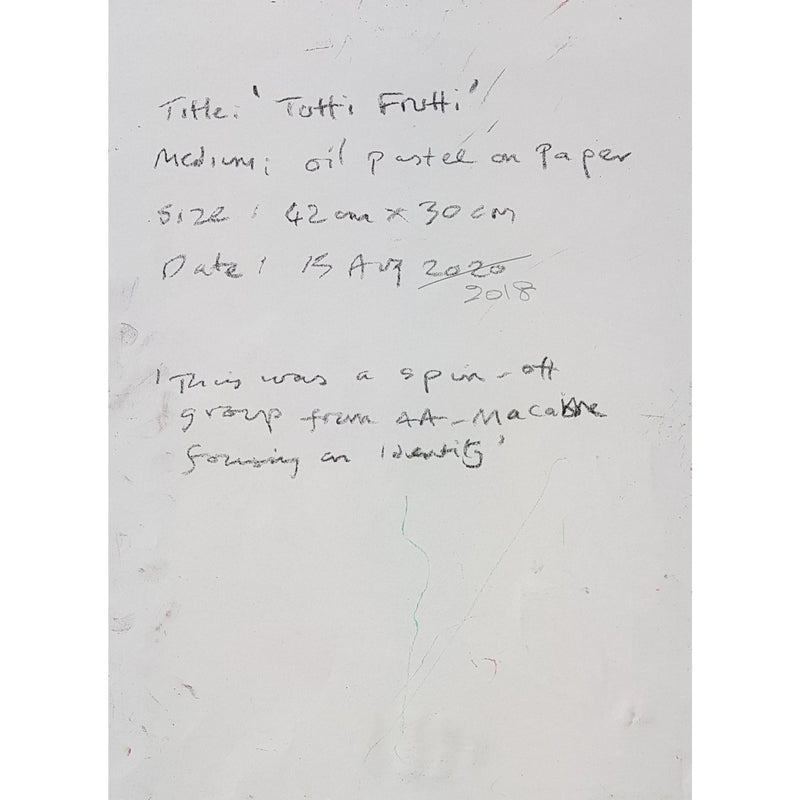 Title: 'Tutti Frutti'
Medium: oil pastel on Paper
Size: 42cm x 30cm
Date: 15 Aug 2020
2018
'This was a spin-off
group from AA-Macabre
focusing on Identity'